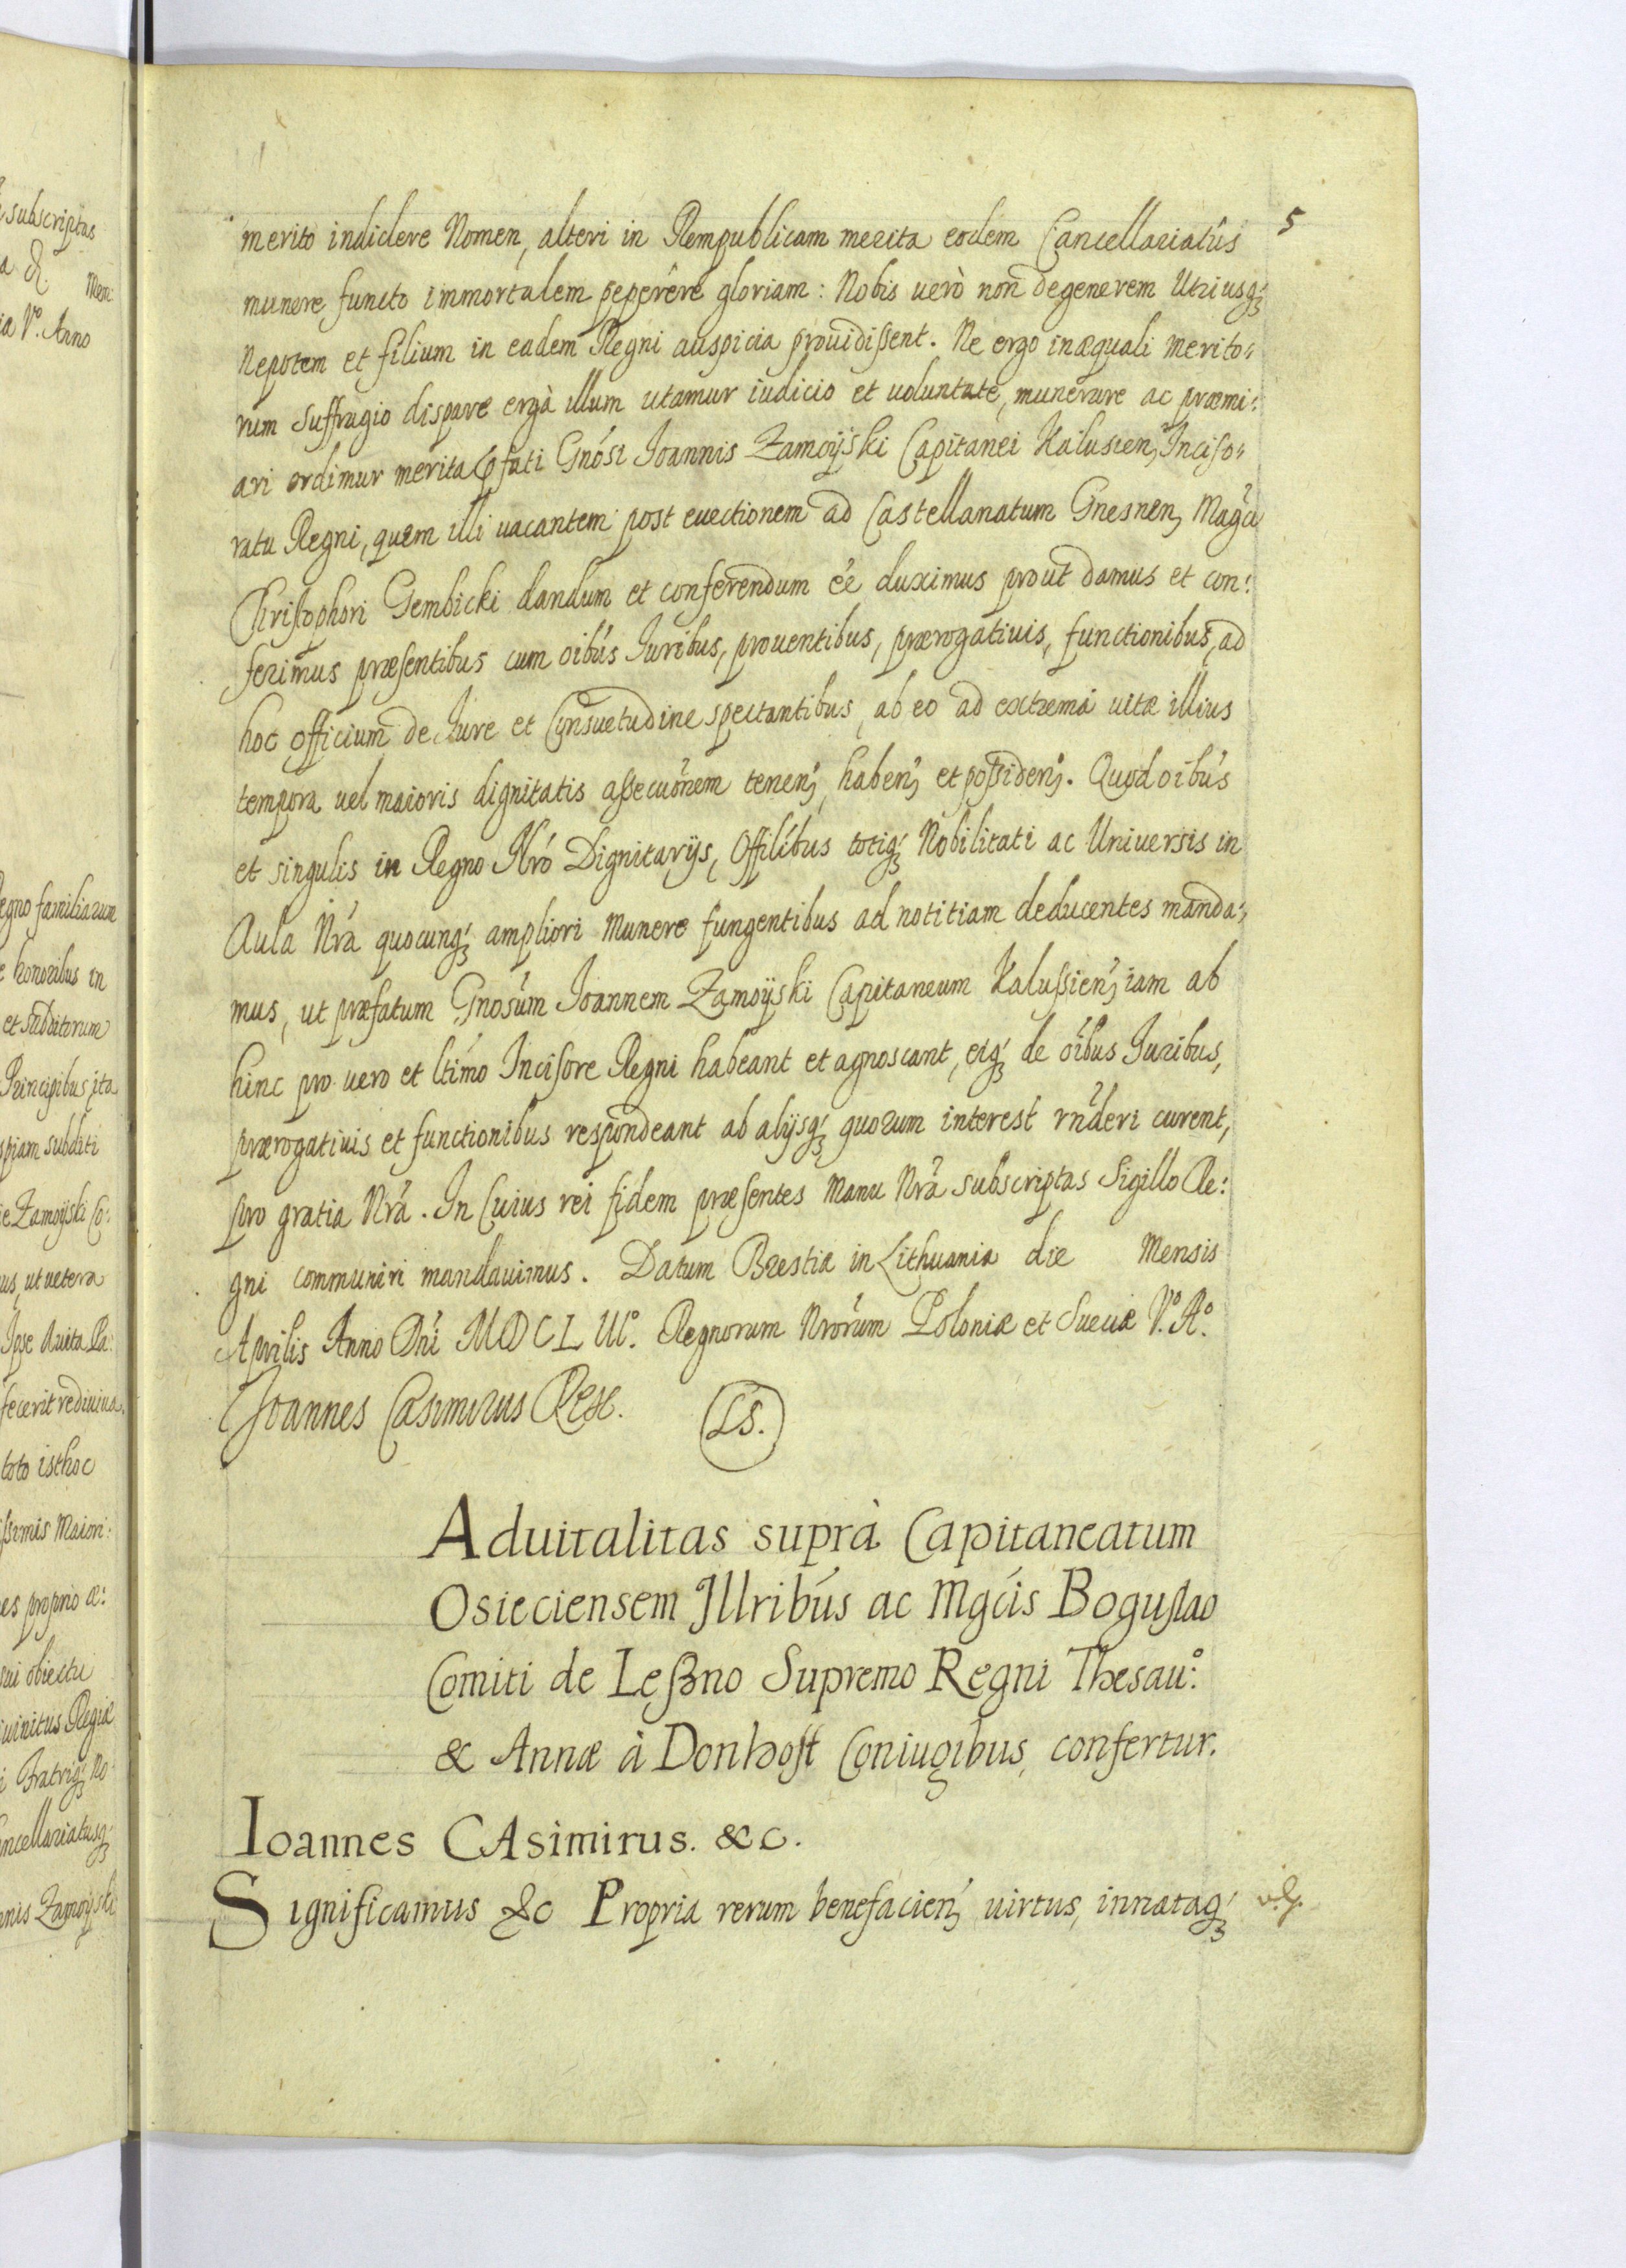 5
merito indidere Nomen, alteri in Rempublicam merita eodem Cancellariatûs
munere functo immortalem peperêre gloriam: Nobis uerò non degenerem Utriusq;
Nepotem et filium in eadem Regni auspicia prouidissent. Ne ergo inæquali merito=
rum suffragio dispare ergà illum utamur iudicio et uoluntate, munerare ac præmi:
ari ordimur merita fati Gnósi Joannis Zamoÿski Capitanei Kalusien, Inciso=
ratu Regni, quem illi uacantem post euectionem ad Castellanatum Gnesnen, Magci
Christophori Gembicki dandum et conferendum ée duximus prout damus et con:
ferimus præsentibus cum oibús Juribus, prouentibus, prærogatiuis, functionibus, ad
hoc officium de Jure et Consuetudine spectantibus, ab eo ad extrema uitæ illius
tempora uel maioris dignitatis assecuónem tenen, haben, et possiden. Quod oibús
et singulis in Regno Nró Dignitarÿs, Offilíbus totiq; Nobilitati ac Uniuersis in
Aula Nrá quocunq; ampliori Munere fungentibus ad notitiam deducentes manda:
mus, ut præfatum Gnosúm Joannem Zamoÿski Capitaneum Kalussien, iam ab
hinc pro uero et ltímo Incisore Regni habeant et agnoscant, eiq; de óibus Juribus,
prærogatiuis et functionibus respondeant ab alÿsq; quorum interest rnderi curent,
pro gratia Nrá. In Cuius rei fidem præsentes Manu Nrá subscriptas Sigillo Re:
gni communiri mandauimus. Datum Brestiæ in Lithuania die Mensis
Aprilis Anno Dní MDCLIII°. Regnorum Nrórum Poloniæ et Sueciæ V°. A°.
Joannes Casimirus Rex. LS.
Aduitalitas suprà Capitaneatum
Osieciensem Jllribús ac Mgcís Boguslao
Comiti de Leszno Supremo Regni Thesau:°
& Annæ à Donhoff Coniugibus, confertur.
Ioannes CAsimirus. &c.
Significamus &c Propria rerum benefacien, uirtus, innataq;
subscriptas
a &.
Men
ia V°. Anno
egno familiarum
e honoribus in
et subditorum
Principibus, ita
spiam subditi
ie Zamoÿski Co:
us, ut uetera
Ipse Auita Pa:
fecerit rediuiua.
toto isthoc
ssimis Maiori:
es proprio æ:
sui obiectu
iuinitus Regiæ
i Fratriq; No
ancellariatusq;
nnis Zamoÿski